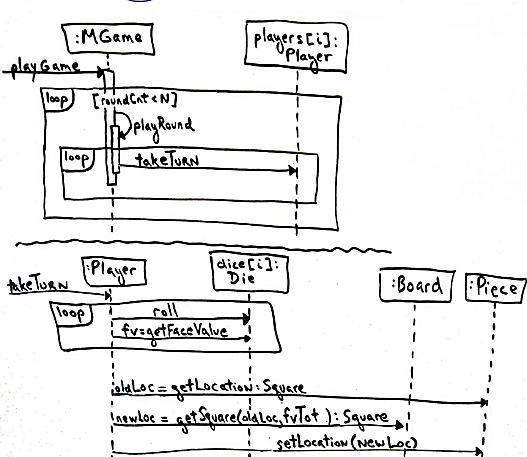 :MGame
players[i]:
Player
playGame
loop
[roundCnt<N]
playRound
loop
takeTurn
:Player
dice[i]:
Die
:Board
:Piece
takeTurn
loop
roll
fv=getFaceValue
oldLoc=getLocetion:Square
newLoc=getSquare(oldLoc,fvTot):Square
setLocation(newLoc)